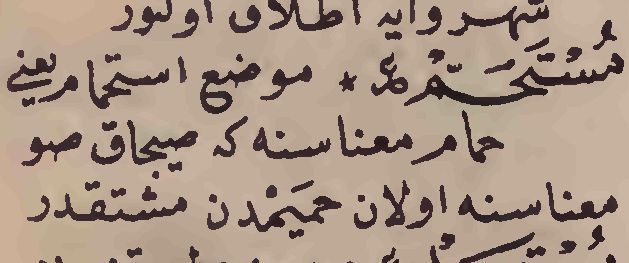 شهر وايه اطلاق اولنور
مُسْتَحَمّْ * موضع استحمام يعنى
حمام معناسنه كه صيجاق صو
معناسنه اولان حميَمْدن مشتقدر